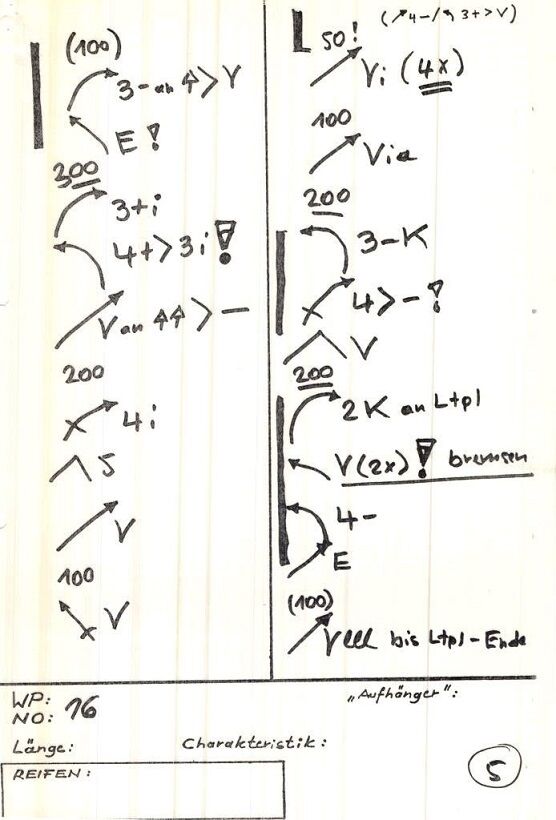 (100)
3- an ⇑ > V
E!
200
3+i
4+ > 3i!
V an ⇑⇑ > —
200
4i
5
V
100
V
(↗4-/↰ 3+>V)
50!
Vi (4x)
100
200
3-K
4>-!
V
200
2K an Ltpl
V(2x)! bremsen
4-
E
(100)
bis Ltpl-Ende
WP:
NO: 16
„Aufhänger":
Länge:
Charakteristik:
REIFEN:
5